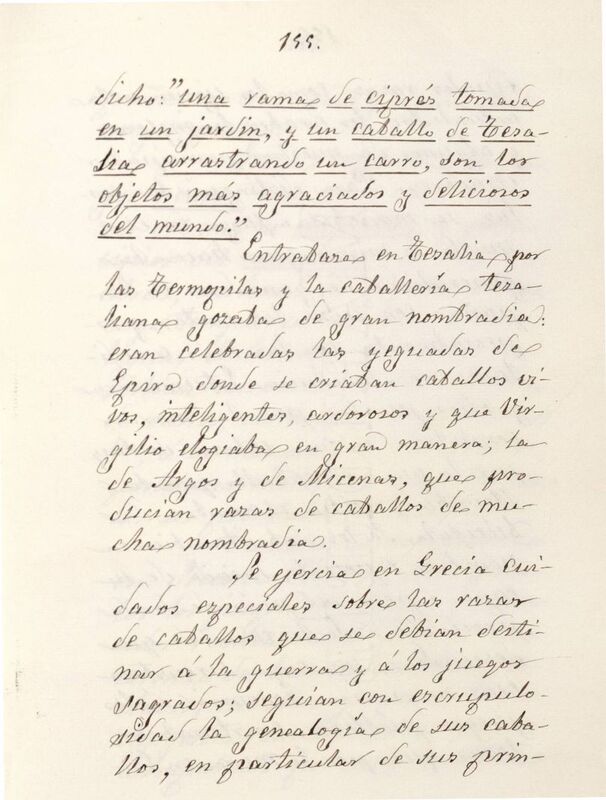 155.
dicho: "una rama de ciprés tomada
en un jardin, y un caballo de Tesa-
lia arrastrando un carro, son los
objetos más agraciados y deliciosos
del mundo."
Entrabase en Tesalia por
las Termopilas y la caballería tesa-
liana gozaba de gran nombradia:
eran celebradas las yeguadas de
Epiro donde se criaban caballos vi-
vos, inteligentes, ardorosos y que Vir-
gilio elogiaba en gran manera; la
de Argos y de Micenas, que pro-
ducian razas de caballos de mu-
cha nombradia.
Se ejercia en Grecia cui-
dados especiales sobre las razas
de caballos que se debian desti-
nar á la guerra y á los juegos
sagrados; seguian con escrupulo-
sidad la genealogía de sus caba-
llos, en particular de sus prin-